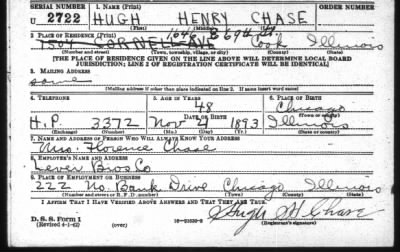 SERIAL NUMBER 1. NAME (Print) ORDER NUMBER
U 2722 HUGH HENRY CHASE
(First) (Middle) (Last)
2. PLACE OF RESIDENCE (Print)
1048 E 69th St.
7504 CORNELL AVE Cook Illinois
(Number and street) (Town, township, village, or city) (County) (State)
[THE PLACE OF RESIDENCE GIVEN ON THE LINE ABOVE WILL DETERMINE LOCAL BOARD
JURISDICTION; LINE 2 OF REGISTRATION CERTIFICATE WILL BE IDENTICAL]
3. MAILING ADDRESS
same
[Mailing address if other than place indicated on line 2. If same insert word same]
4. TELEPHONE 5. AGE IN YEARS 6. PLACE OF BIRTH
48 Chicago
DATE OF BIRTH (Town or county)
H.P. 3372 Nov 4 1893 Illinois
(Exchange) (Number) (Mo.) (Day) (Yr.) (State or country)
7. NAME AND ADDRESS OF PERSON WHO WILL ALWAYS KNOW YOUR ADDRESS
Mrs. Florence Chase
8. EMPLOYER'S NAME AND ADDRESS
Lever Bros Co
9. PLACE OF EMPLOYMENT OR BUSINESS
222 No. Bank Drive Chicago Illinois
(Number and street or R. F. D. number) (Town) (County) (State)
I AFFIRM THAT I HAVE VERIFIED ABOVE ANSWERS AND THAT THEY ARE TRUE.
D. S. S. Form 1 Hugh H Chase
(Revised 4-1-42) (over) (Registrant's signature)